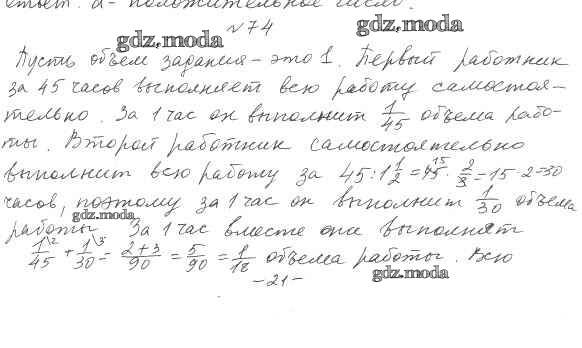 ответ: а - положительное число.
№ 74
gdz.moda
gdz.moda
Пусть объем задания - это 1. Первый работник
за 45 часов выполняет всю работу самостоя-
тельно. За 1 час он выполнит 1/45 объема рабо-
ты. Второй работник самостоятельно
выполнит всю работу за 45 : 1 1/2 = 45 15 · 2/3 = 15 · 2 = 30
часов, поэтому за 1 час он выполнит 1/30 объема
gdz.moda
работы. За 1 час вместе они выполнят
1/45 \2 + 1/30 \3 = 2+3/90 = 5/90 = 1/18 объема работы. Всю
gdz.moda
- 21 -